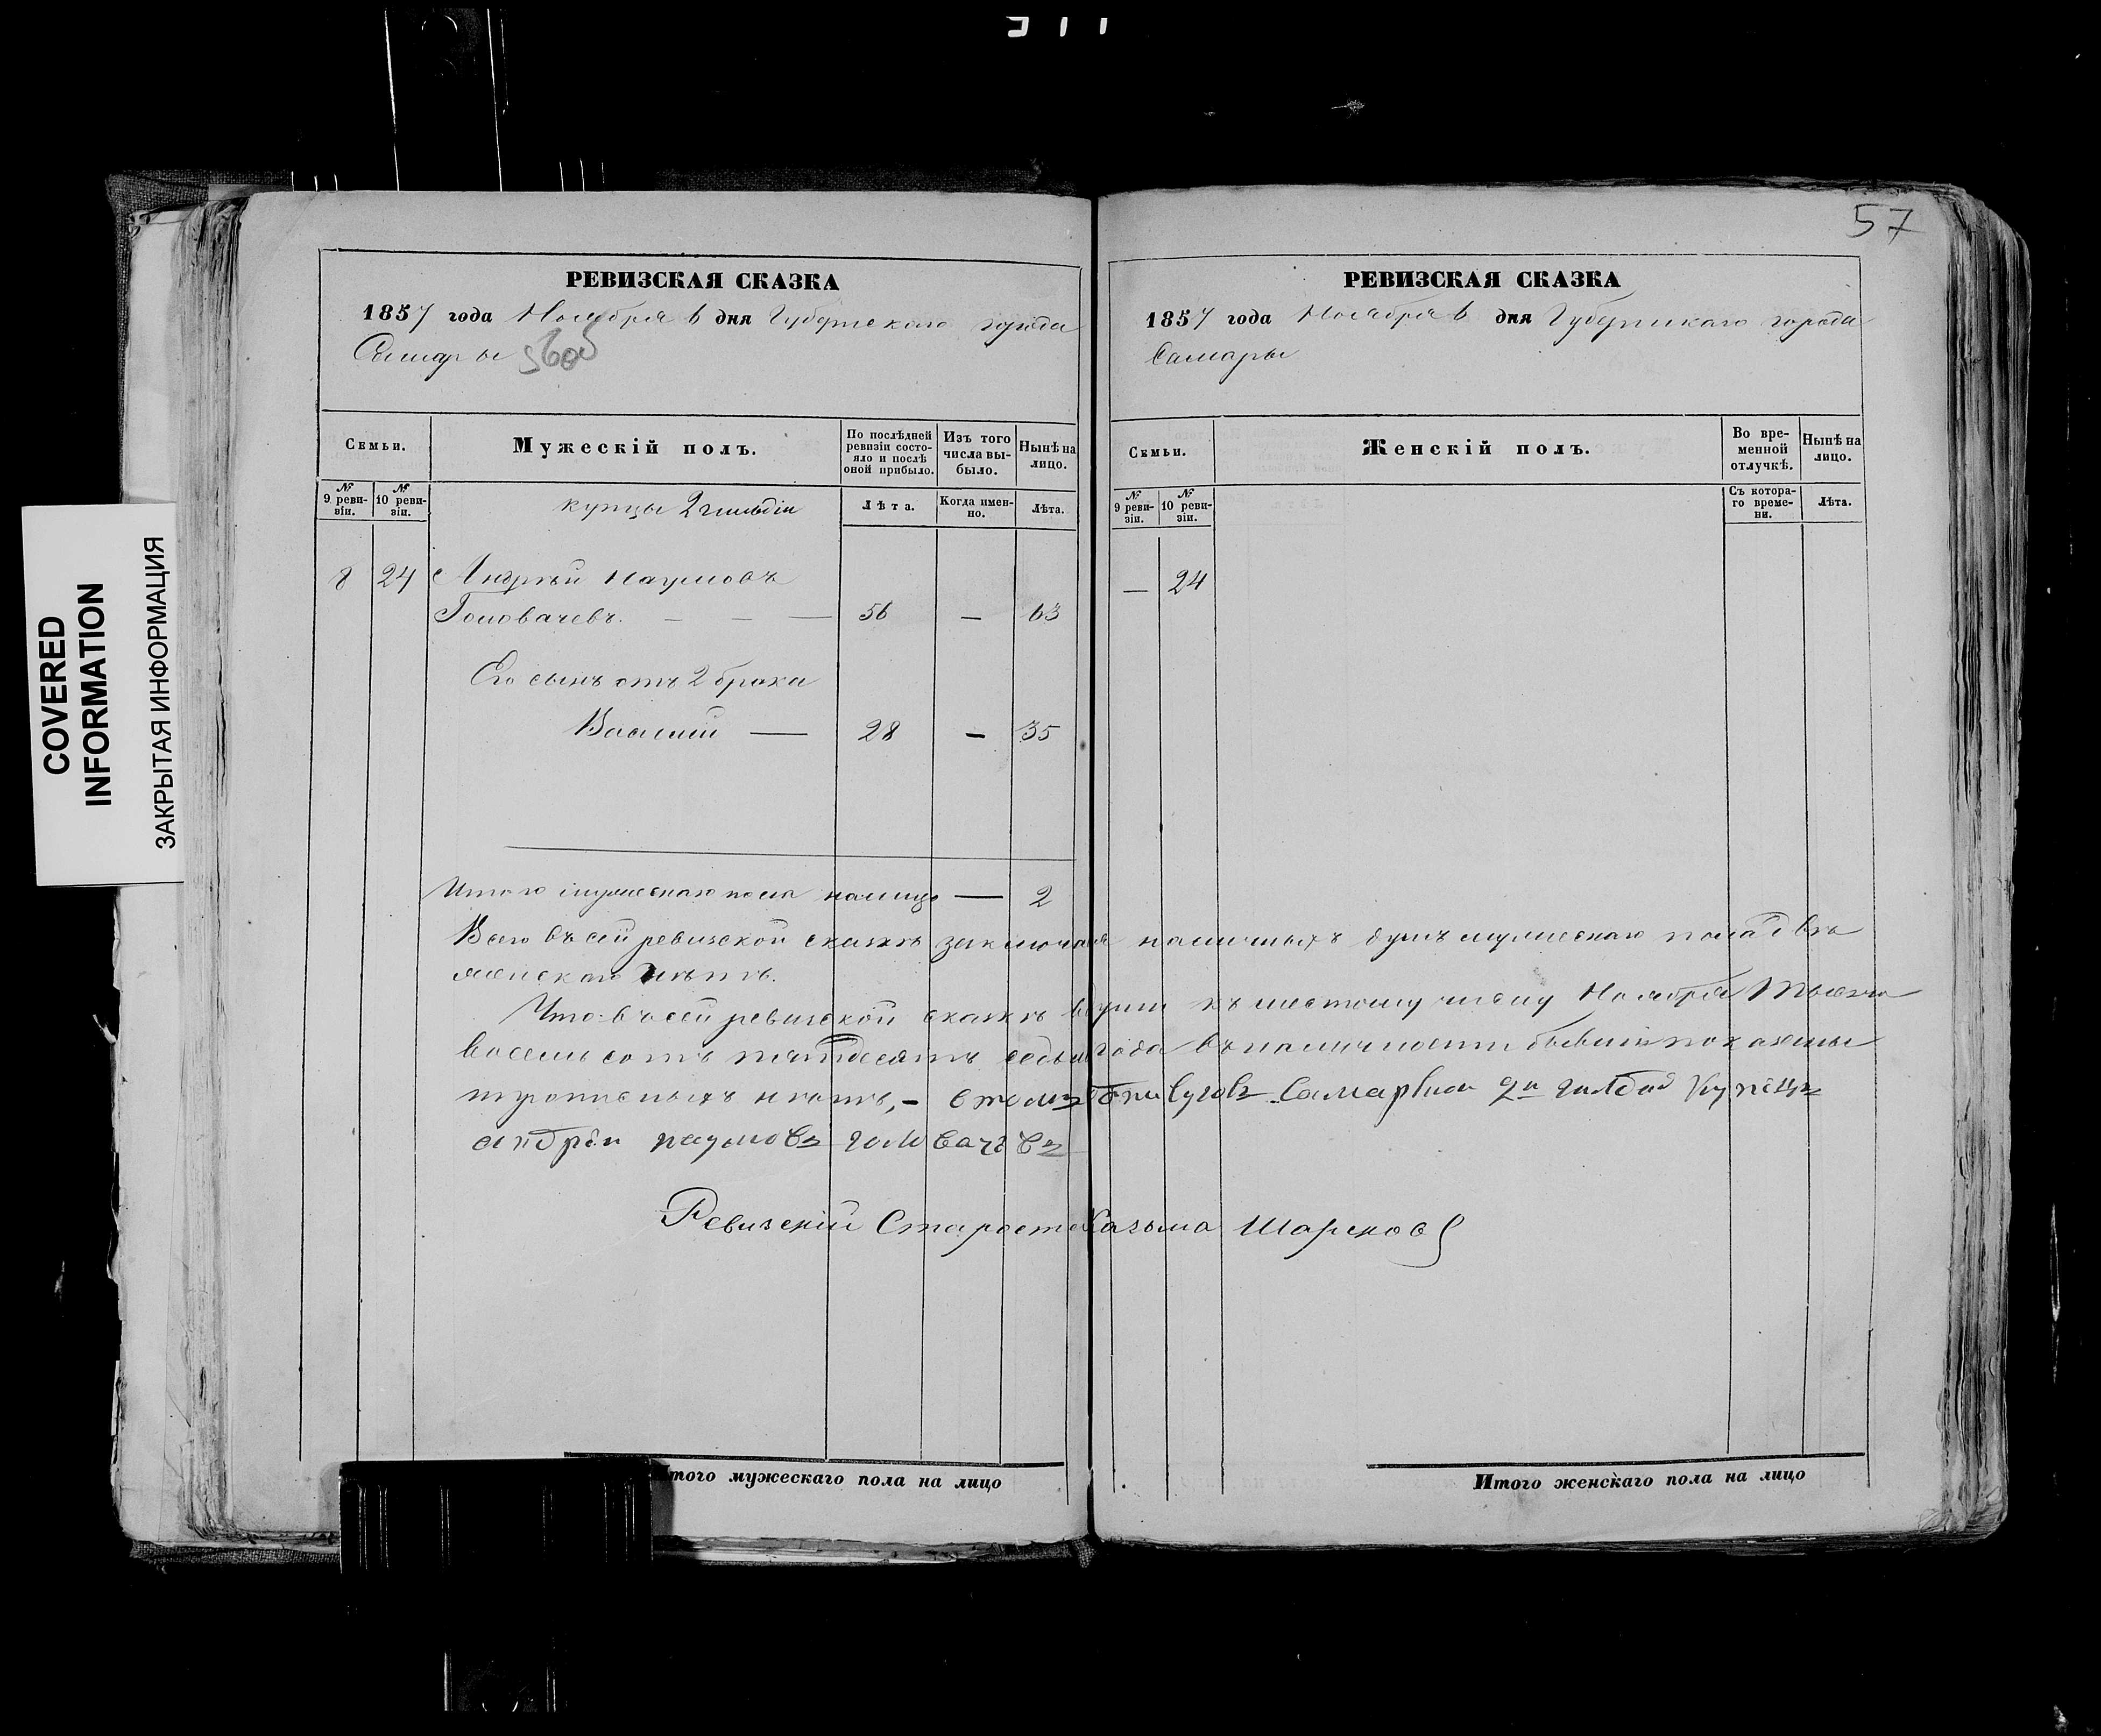 57
РЕВИЗСКАЯ СКАЗКА
1857 года Ноября 6 дня Губернскаго города
Самары
Семьи.
Мужескій полъ.
По послѣдней ревизіи состояло и послѣ оной прибыло.
Изъ того числа выбыло.
Нынѣ на лицо.
№ 9 ревизіи.
№ 10 ревизіи.
купцы 2 гильдіи
Лѣта.
Когда именно.
Лѣта.
8 24 Андрѣй Наумовъ
Головачевъ. — — — 56 — 63
Его сынъ отъ 2 брака
Василій — 28 — 35
Итого мужескаго пола налицо — 2
РЕВИЗСКАЯ СКАЗКА
1857 года Ноября 6 дня Губернскаго города
Самары
Семьи.
Женскій полъ.
Во временной отлучкѣ.
Нынѣ на лицо.
№ 9 ревизіи.
№ 10 ревизіи.
Съ котораго времени.
Лѣта.
— 24
Всего въ сей ревизской сказкѣ заключается наличныхъ душъ мужескаго пола двѣ
женскаго нѣтъ.
Что въ сей ревизской сказкѣ всѣ души къ шестому числу Ноября Тысяча
восемь сотъ пятдесятъ седьмаго года въ наличности бывшія показаны
и прописныхъ нѣтъ,-
андрей наумовъ головачевъ
Ревизскій Староста Казьма Шарсков
Итого мужескаго пола на лицо
Итого женскаго пола на лицо
COVERED
INFORMATION
ЗАКРЫТАЯ ИНФОРМАЦИЯ